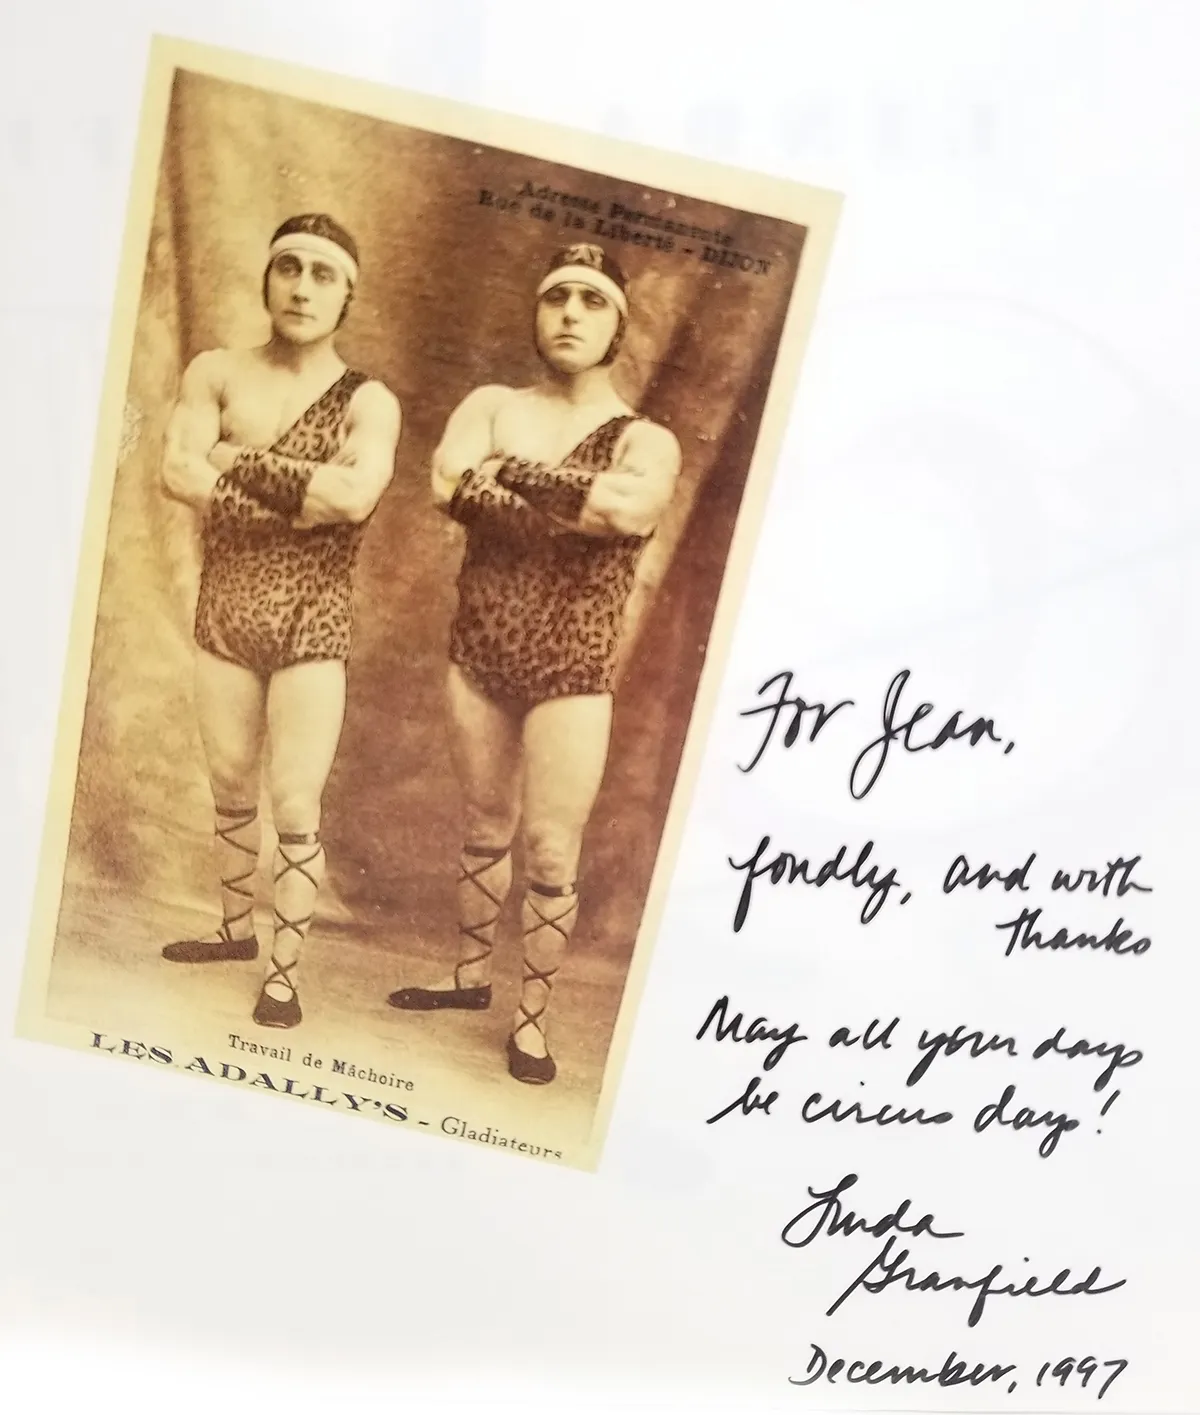 Adresse Permanente
Rue de la Liberté - DIJON
Travail de Mâchoire
LES ADALLY'S - Gladiateurs
For Jean,
fondly, and with
thanks
May all your days
be circus days!
Linda
Granfield
December, 1997